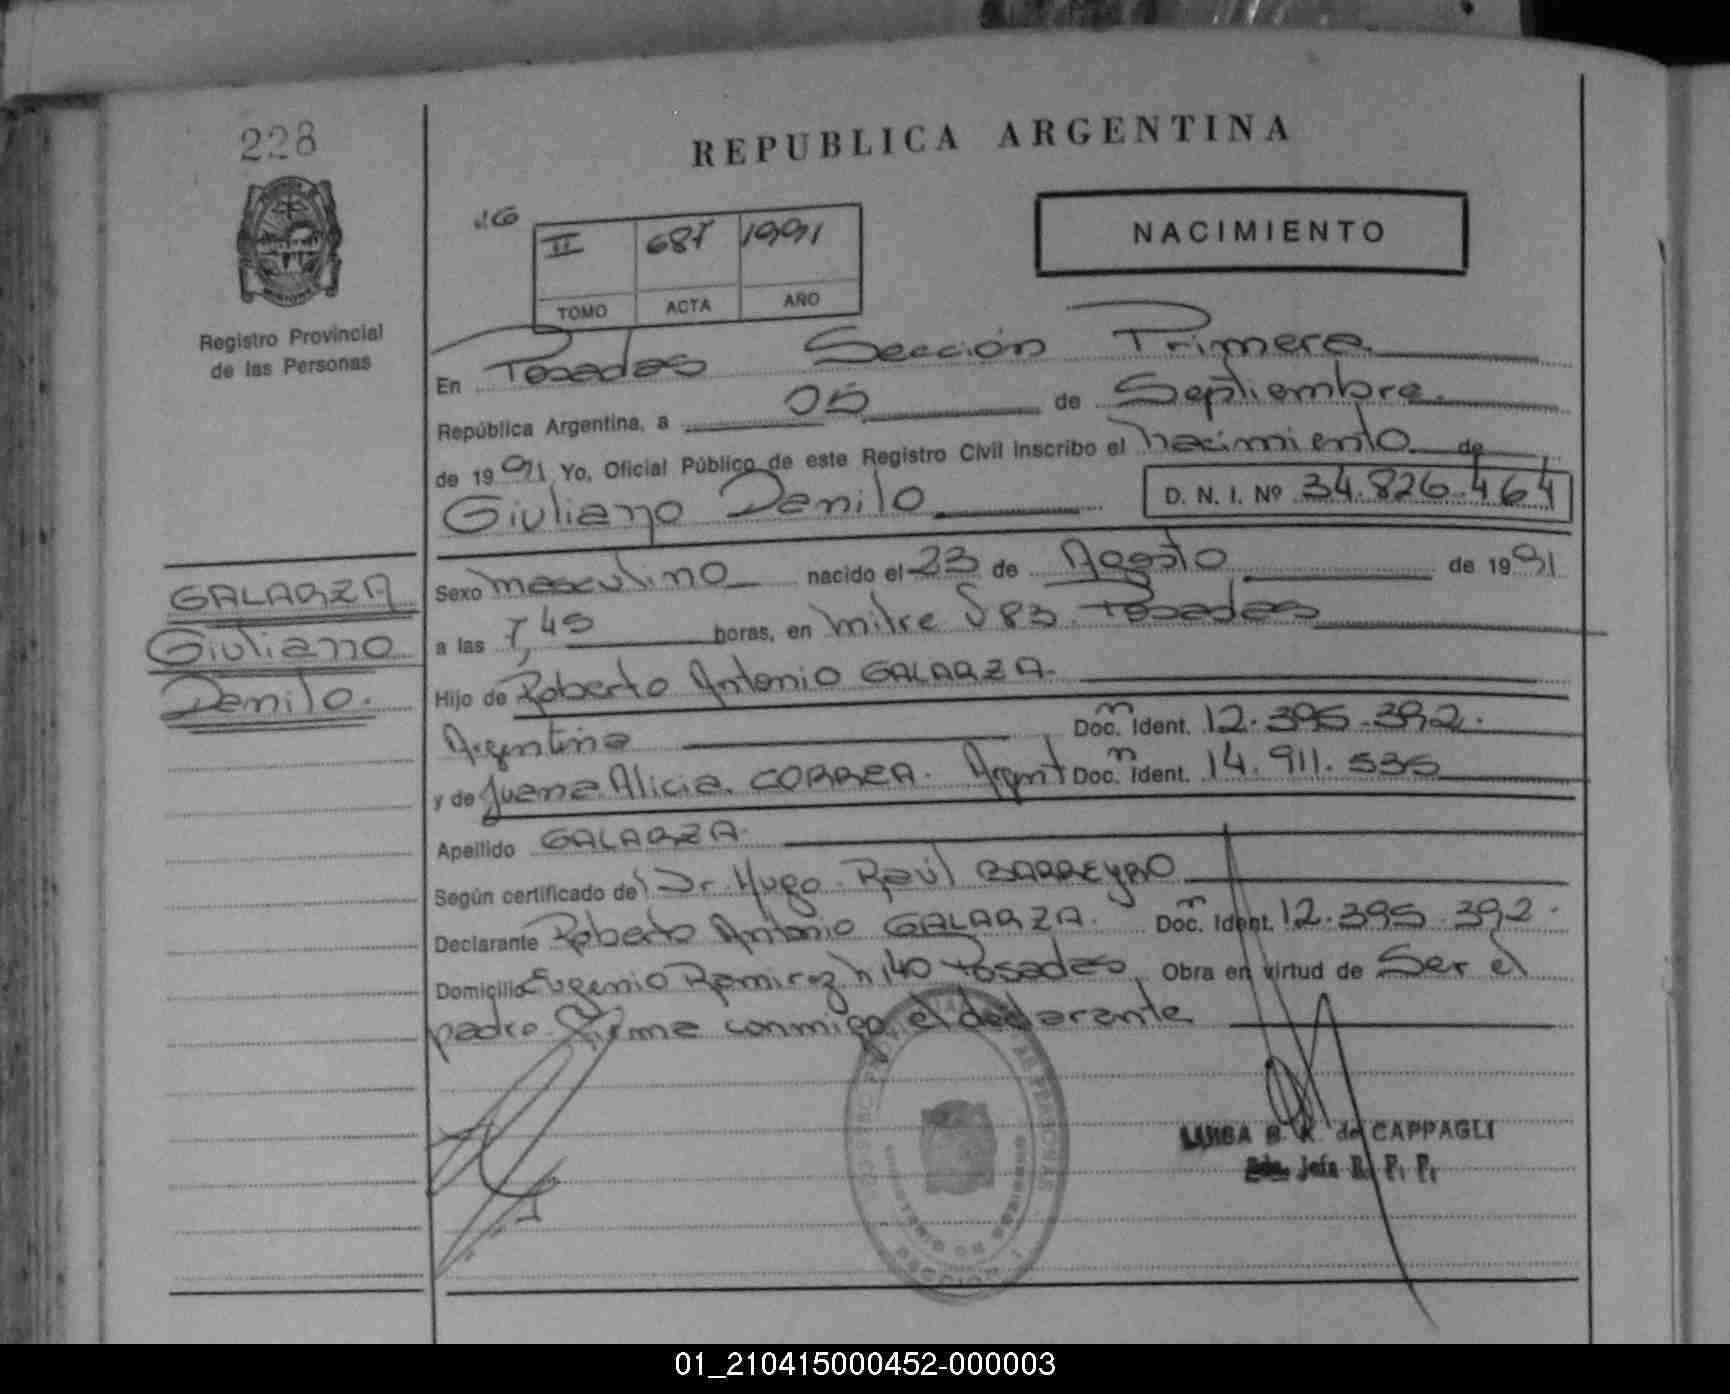 228
REPUBLICA ARGENTINA
NACIMIENTO
II 687 1991
TOMO ACTA AÑO
Registro Provincial
de las Personas
En Posadas Sección Primera
República Argentina, a 05 de Septiembre
de 1991 Yo, Oficial Público de este Registro Civil inscribo el nacimiento de
Giulianno Danilo D. N. I. Nº 34.826.464
GALARZA
Giulianno
Danilo.
Sexo masculino nacido el 23 de Agosto de 1991
a las 7,45 horas, en Mitre 583 Posadas
Hijo de Roberto Antonio GALARZA.
Argentina Doc. Ident. 12.395.392.
y de Juana Alicia CORREA. Argent Doc. Ident. 14.911.535
Apellido GALARZA.
Según certificado del Dr. Hugo Raúl BARREYRO
Declarante Roberto Antonio GALARZA. Doc. Ident. 12.395.392.
Domicilio Eugenio Ramirez n 140 Posadas Obra en virtud de Ser el
padre. Firma conmigo el declarante
de CAPPAGLI
Jefa R. P. P.
01_210415000452-000003